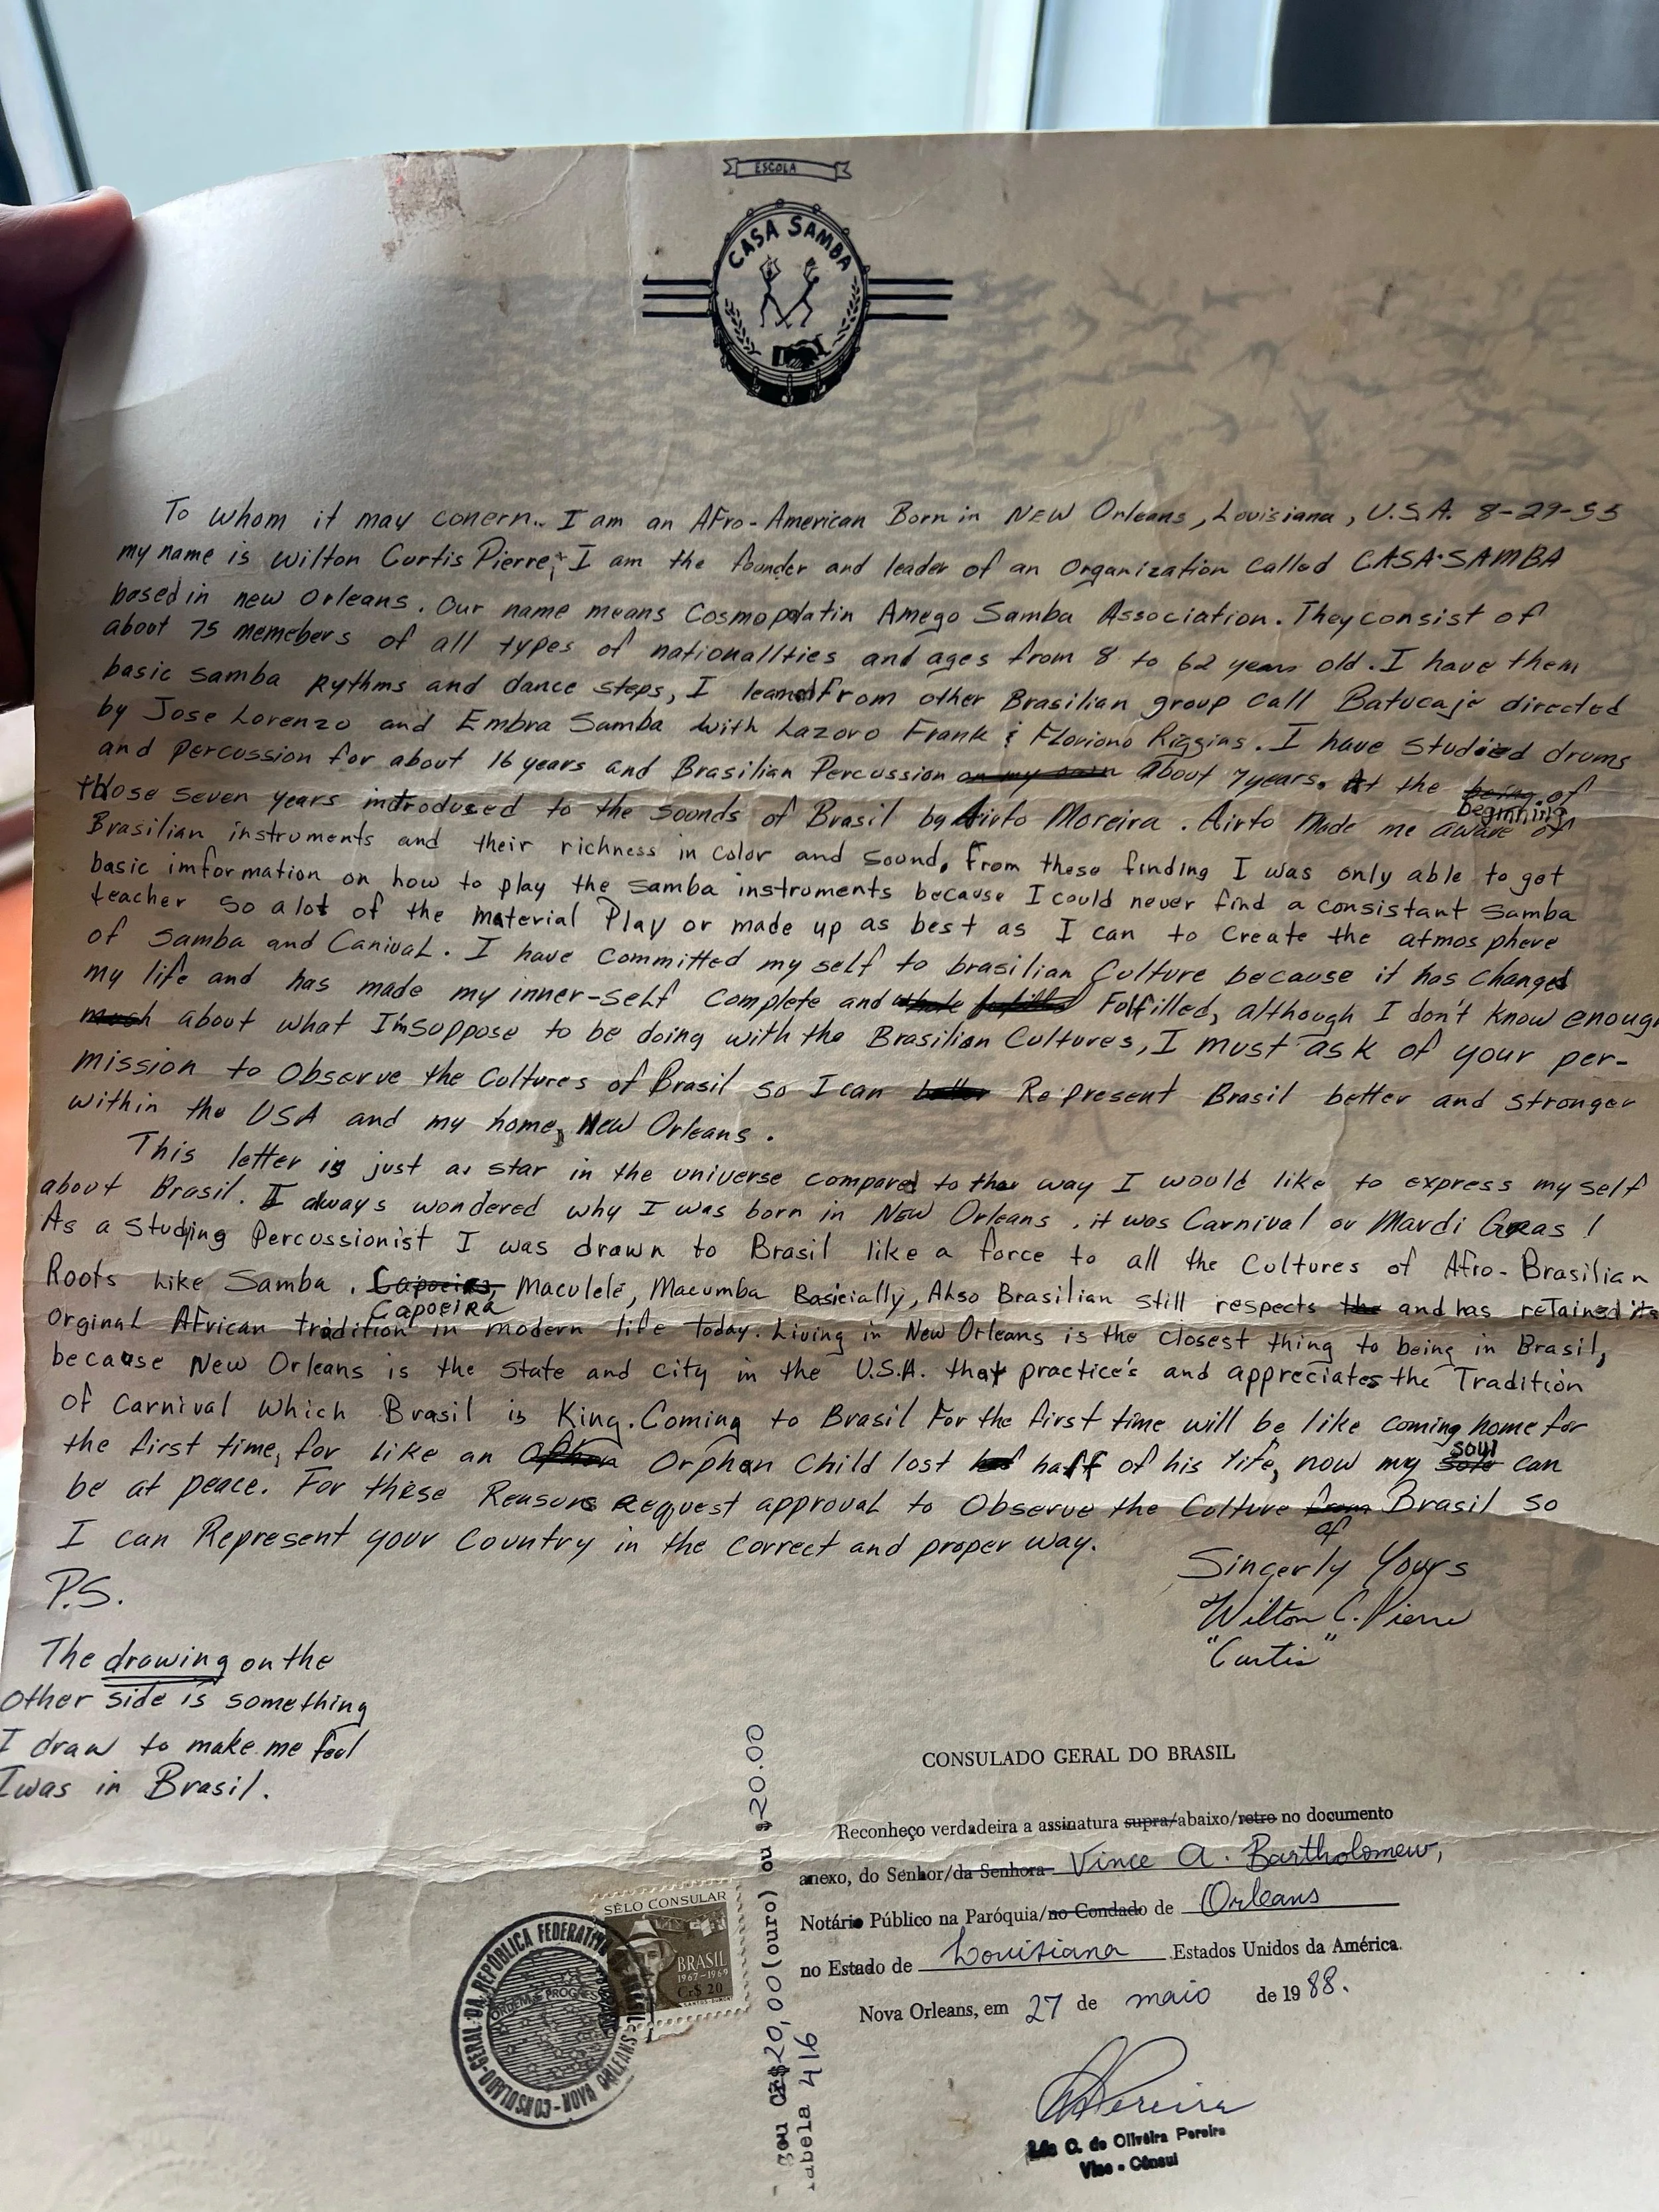 ESCOLA
CASA SAMBA
To whom it may conern.. I am an Afro-American Born in NEW Orleans, Louisiana, U.S.A. 8-29-55
my name is Wilton Curtis Pierre; I am the founder and leader of an Organization called CASA-SAMBA
based in new Orleans. Our name means Cosmopolatin Amego Samba Association. They consist of
about 75 memebers of all types of nationallties and ages from 8 to 62 years old. I have them
basic samba Rythms and dance steps, I learned from other Brasilian group call Batucaje directed
by Jose Lorenzo and Embra Samba with Lazoro Frank & Floriono Riggins. I have studied drums
and percussion for about 16 years and Brasilian Percussion on my own about 7 years. At the being of
beginning
those seven years introdused to the sounds of Brasil by Airto Moreira. Airto Made me aware of
Brasilian instruments and their richness in color and sound. From these finding I was only able to get
basic imformation on how to play the samba instruments because I could never find a consistant Samba
teacher so alot of the material Play or made up as best as I can to create the atmosphere
of samba and Canival. I have committed my self to brasilian Culture because it has changed
my life and has made my inner-self complete and whole fulfilled Folfilled, although I don't know enough
much about what I'm suppose to be doing with the Brasilian Cultures, I must ask of your per-
mission to Observe the Cultures of Brasil so I can better Represent Brasil better and stronger
within the USA and my home, New Orleans.
This letter is just a star in the universe compared to the way I would like to express my self
about Brasil. I always wondered why I was born in New Orleans, it was Carnival or Mardi Gras!
As a Studying Percussionist I was drawn to Brasil like a force to all the Cultures of Afro-Brasilian
Roots like Samba, Capoeira, Maculelé, Macumba Basicially, Also Brasilian still respects the and has retained its
Capoeira
Orginal African tradition in modern life today. Living in New Orleans is the closest thing to being in Brasil,
because New Orleans is the state and city in the U.S.A. that practice's and appreciates the Tradition
of Carnival which Brasil is King. Coming to Brasil For the first time will be like coming home for
the first time, for like an Orphan Child lost half of his life, now my sole can
soul
be at peace. For these Reasons Request approval to Observe the Culture from Brasil so
of
I can Represent your Country in the correct and proper way.
Sincerly Yours
Wilton C. Pierre
"Curtis"
P.S.
The drawing on the
other side is something
I draw to make me feel
I was in Brasil.
CONSULADO GERAL DO BRASIL
Reconheço verdadeira a assinatura supra/abaixo/retro no documento
anexo, do Senhor/da Senhora Vince A. Bartholomew,
Notário Público na Paróquia/no Condado de Orleans
no Estado de Louisiana Estados Unidos da América.
Nova Orleans, em 27 de maio de 1988.
Pereira
C. de Oliveira Pereira
Vice-Cônsul
20,00 (ouro) ou $ 20.00
abela 416
SÊLO CONSULAR
BRASIL
1967-1969
Cr$ 20
SANTOS-DUMONT
CONSULADO-GERAL DA REPÚBLICA FEDERATIVA DO BRASIL
NOVA ORLEANS
ORDEM E PROGRESSO